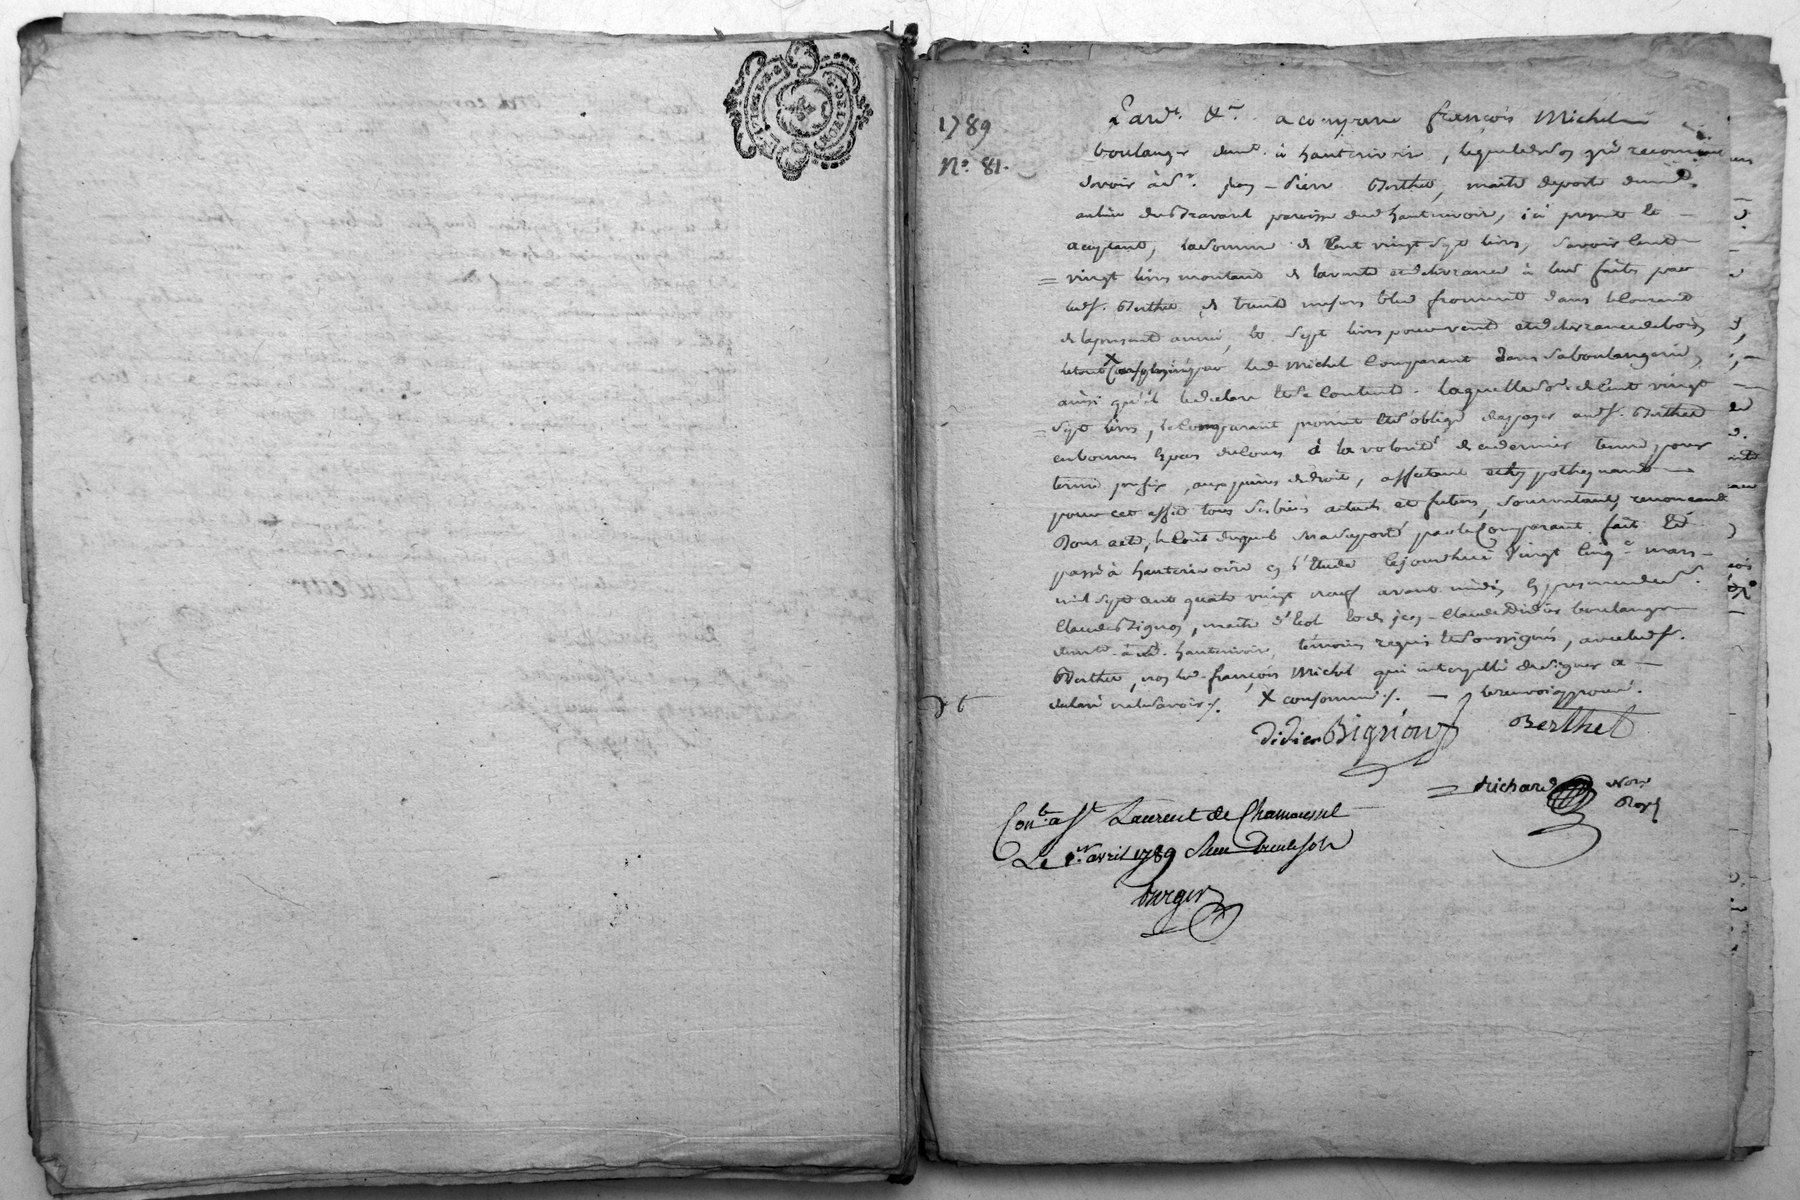 1789
N.° 81.
Pard.t &.a a comparu françois Michel
boulanger dem.t à hauterivoire, lequel de son gré reconnu
devoir à s.r jean-pierre Berthet, maître de poste dem.t
au lieu du Bravard paroisse dud hauterivoire, ici présent et
acceptant, la somme de Cent vingt sept livres, savoir Cent
vingt livres montant de la vente et délivrance à lui faites par
led s.r Berthet de trente mesures bled froment dans le Courant
de la présente année, et sept livres pour vente et délivrance de bois,
le tout X par led Michel Comparant dans sa boulangerie,
ainsi qu'il le déclare et s'en Contente. laquelle so.e de Cent vingt
sept livres, le Comparant promet et s'oblige de payer aud s.r Berthet
en bonnes espèces de Cours à la volonté de ce dernier tenue pour
terme prefix, aux peines de droit, affectant et hypothéquant
pour cet effet tous ses biens actuels et futurs, soumettant, renonçant
Dont acte, le Coût duquel sera supporté par le Comparant. fait et
passé à hauterivoire en l'Etude le jourd'hui vingt Cinq.e mars
mil sept cent quatre vingt neuf avant midi, en présence de s.r
Claude Bignon, maître d'Ecol et de jean-Claude Didier boulanger
dem.t à d. hauterivoire, témoins requis et soussignés, avec led s.r
Berthet, non led. françois Michel qui interpellé de signer a
déclaré ne le savoir ./. X consommé ./. le renvoi approuvé.
didier Bignon Berthet
Richard Not.re
Roy.l
Con.lé a S.t Laurent de Chamousset
Le 1.er avril 1789 Reçu trente sols
barges